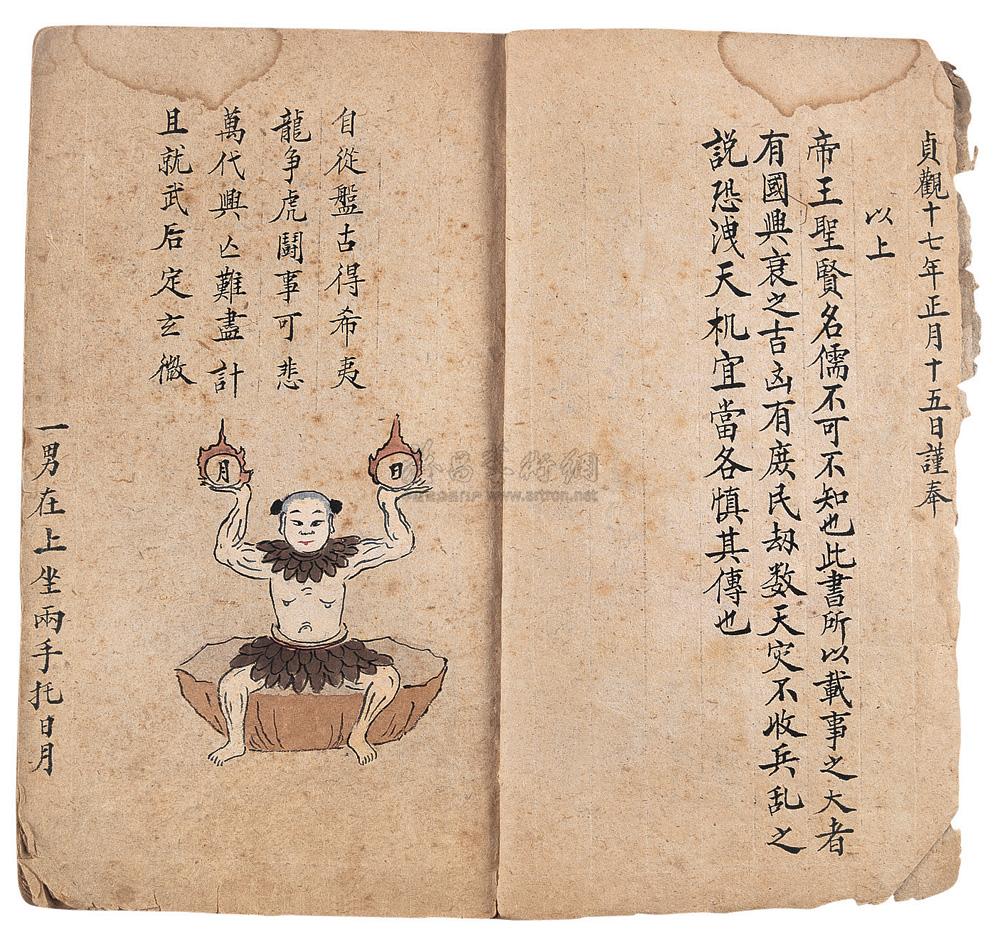 貞觀十七年正月十五日謹奉
以上
帝王聖賢名儒不可不知也此書所以載事之大者
有國興衰之吉凶有庶民劫数天灾不收兵乱之
説恐洩天机宜當各慎其傳也
自從盤古得希夷
龍争虎鬪事可悲
萬代興亡難盡計
且就武后定玄微
日
月
一男在上坐兩手托日月
www.artron.net